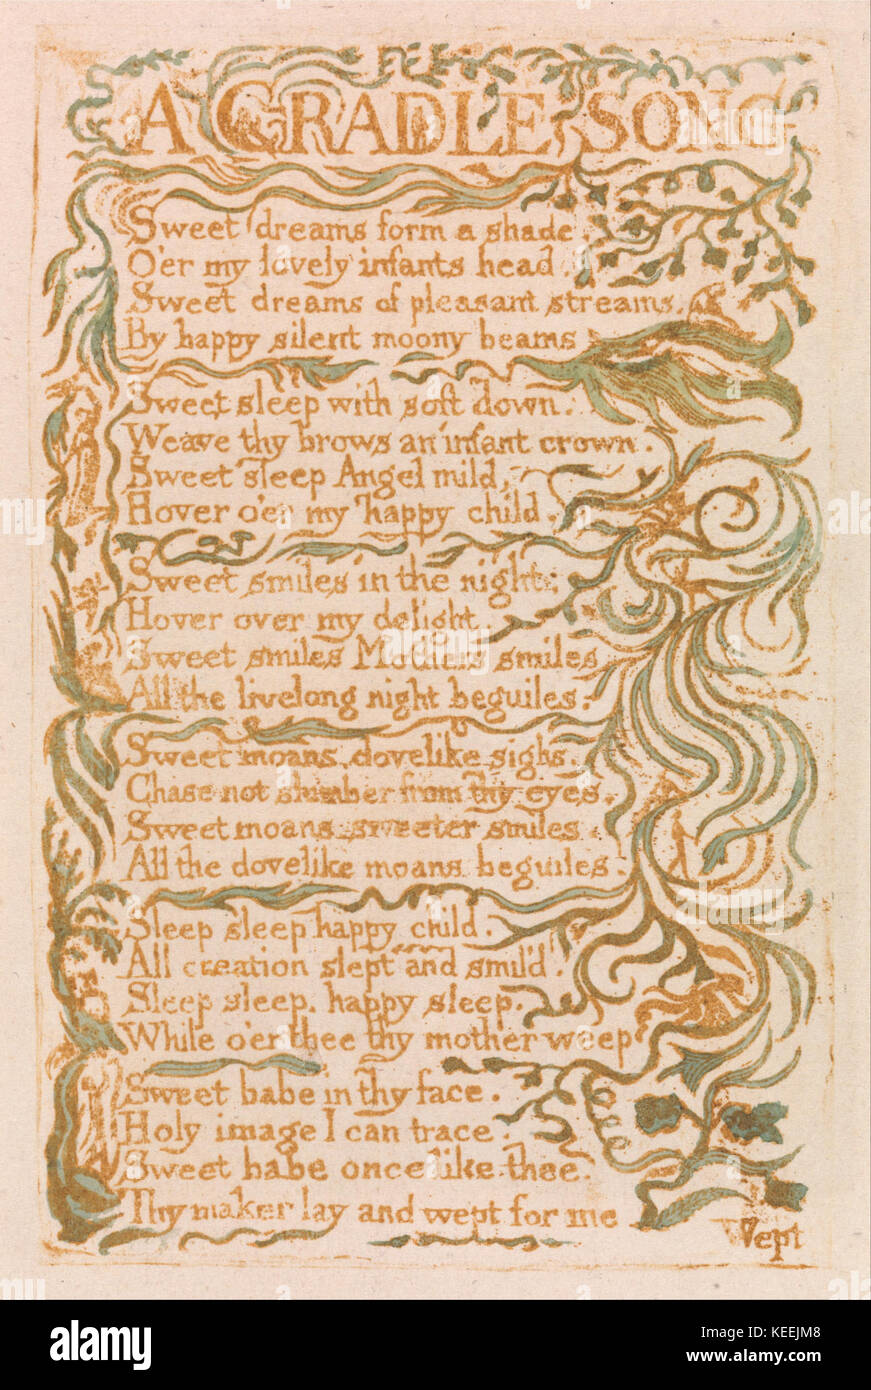 A CRADLE SONG
Sweet dreams form a shade.
O'er my lovely infants head.
Sweet dreams of pleasant streams.
By happy silent moony beams
Sweet sleep with soft down.
Weave thy brows an infant crown.
Sweet sleep Angel mild,
Hover o'er my happy child.
Sweet smiles in the night,
Hover over my delight.
Sweet smiles Mothers smiles
All the livelong night beguiles.
Sweet moans, dovelike sighs.
Chase not slumber from thy eyes.
Sweet moans, sweeter smiles
All the dovelike moans beguiles.
Sleep sleep happy child.
All creation slept and smil'd.
Sleep sleep, happy sleep.
While o'er thee thy mother weep
Sweet babe in thy face.
Holy image I can trace.
Sweet babe once like thee.
Thy maker lay and wept for me
Wept
alamy stock photo
a
alamy
KEEJM8
www.alamy.com